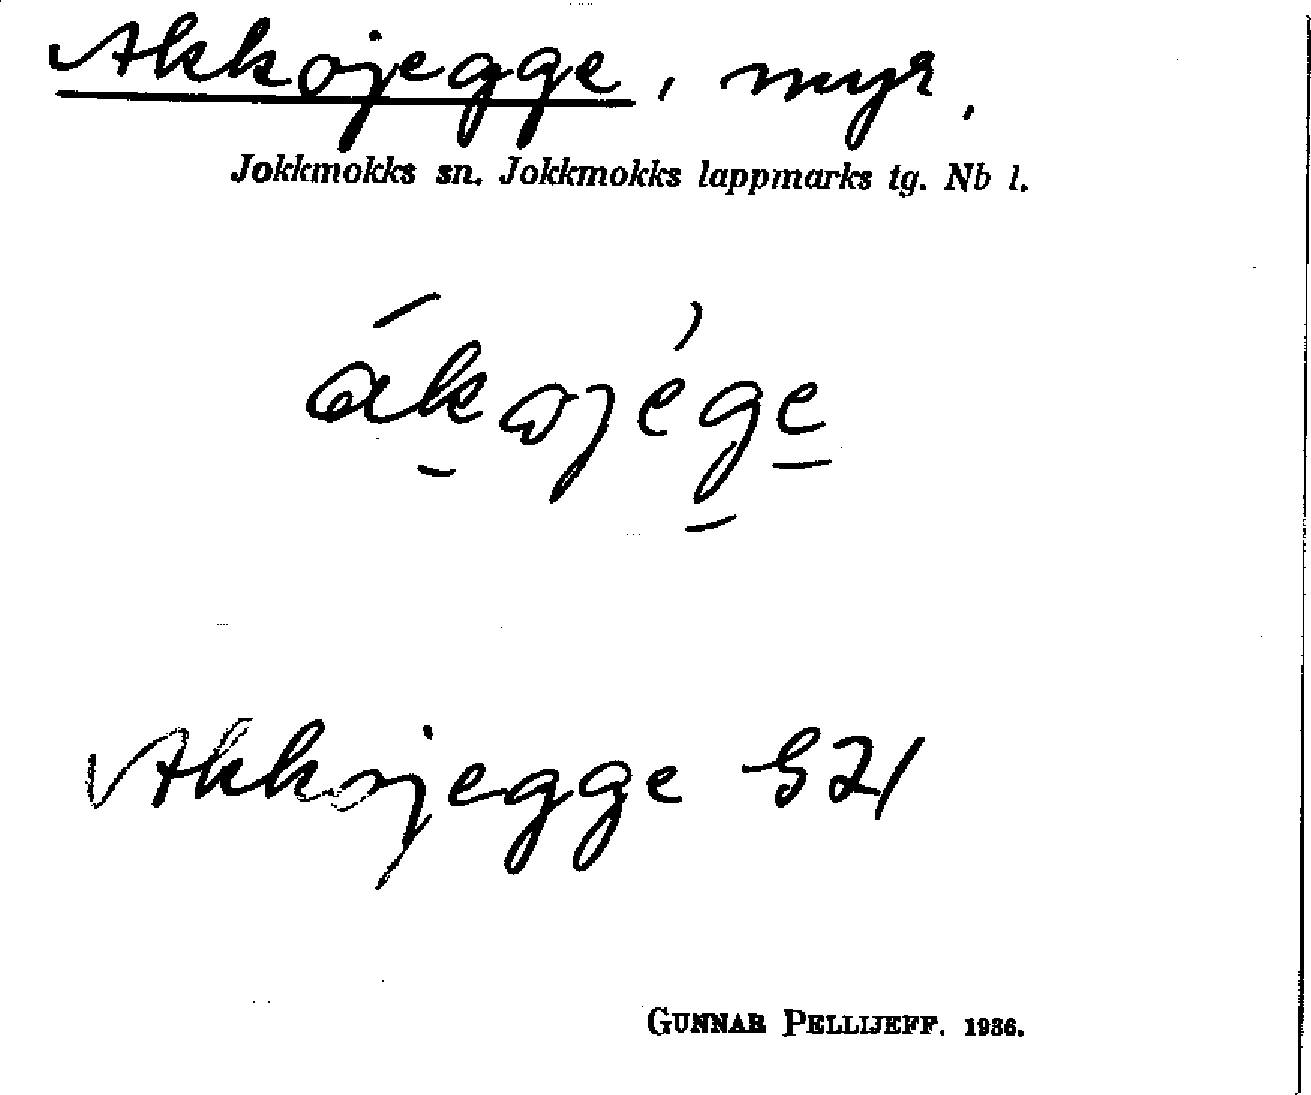 Akkojegge, myr.
Jokkmokks sn. Jokkmokks lappmarks tg. Nb l.
Akkojegge G21
GUNNAR PELLIJEFF. 1936.